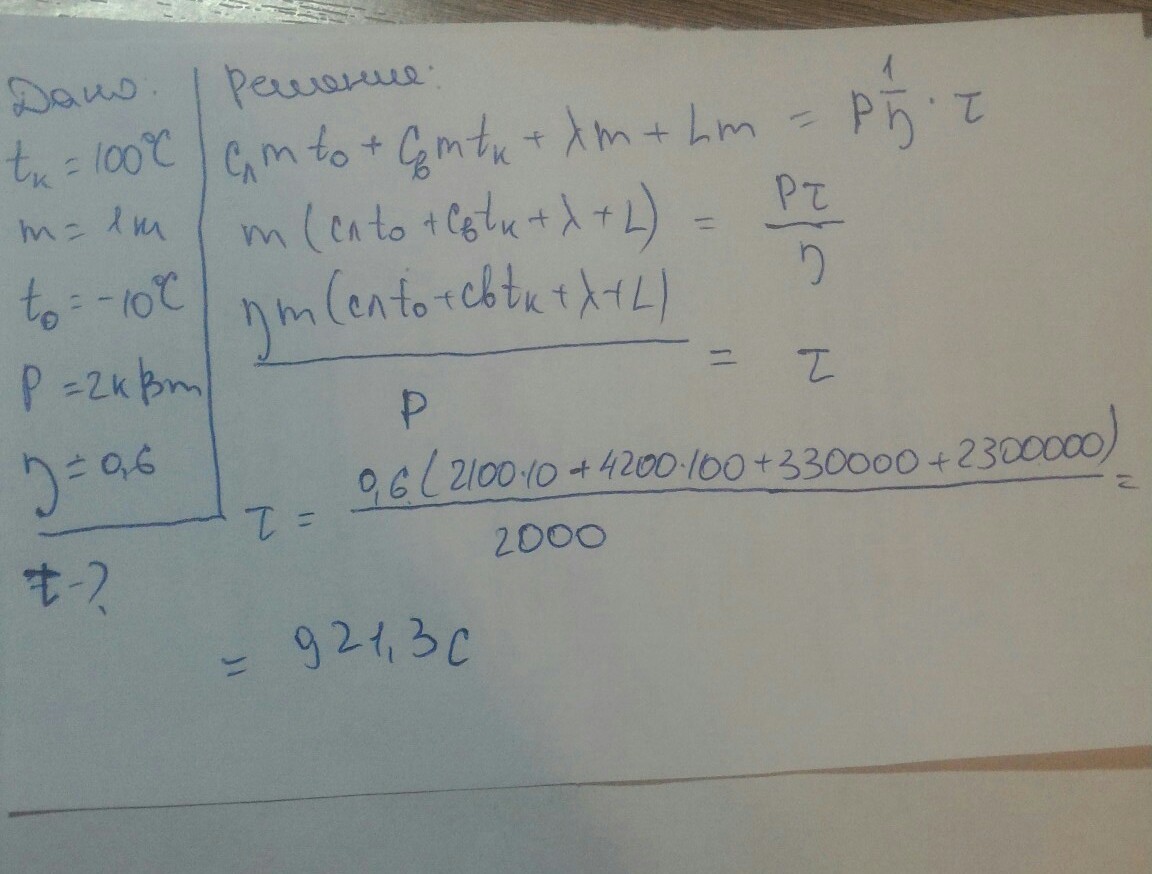 Дано:
tк = 100°C
m = 1 т
t₀ = -10°C
P = 2 кВт
η = 0,6
t - ?
Решение:
Cл m t₀ + Cв m tк + λm + Lm = P 1/η · τ
m (Cл t₀ + Cв tк + λ + L) = Pτ/η
ηm (Cл t₀ + Cв tк + λ + L)/P = τ
τ = 0,6 (2100·10 + 4200·100 + 330000 + 2300000)/2000 =
= 921,3 с